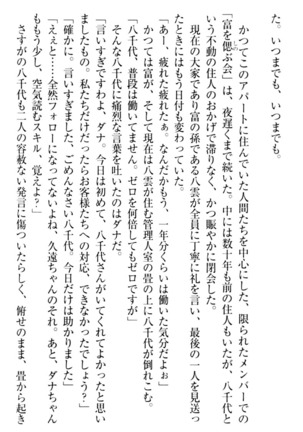 た。いつまでも、いつまでも。
かつてこのアパートに住んでいた人間たちを中心にした、限られたメンバーでの
「富を偲ぶ会」は、夜遅くまで続いた。中には数十年も前の住人もいたが、八千代と
いう不動の住人のおかげで滞りなく、かつ賑やかに閉会した。
現在の大家であり富の孫である八雲が全員に丁寧に礼を言い、最後の一人を見送っ
たときにはもう日付も変わっていた。
「あー、疲れた疲れたぁ。なんだかもう、一年分くらいは働いた気分だよぉ」
かつては富が、そして現在は八雲が住む管理人室の畳の上に八千代が倒れこむ。
「八千代、普段は働いてません。ゼロを何倍してもゼロですが」
そんな八千代に痛烈な言葉を吐いたのはダナだ。
「言いすぎですわよ、ダナ。今日は初めて、八千代さんがいてくれてよかったと思い
ましたもの。私たちだけだったらお客様たちへの対応、できなかったでしょう？」
「確かに。言いすぎました、ごめんなさい八千代。今日だけは助かりました」
「えぇと……全然フォローになってないよね、久遠ちゃんのそれ。あと、ダナちゃん
ももう少し、空気読むスキル、覚えよ？」
さすがの八千代も二人の容赦ない発言に傷ついたらしく、俯せのまま、畳から起き